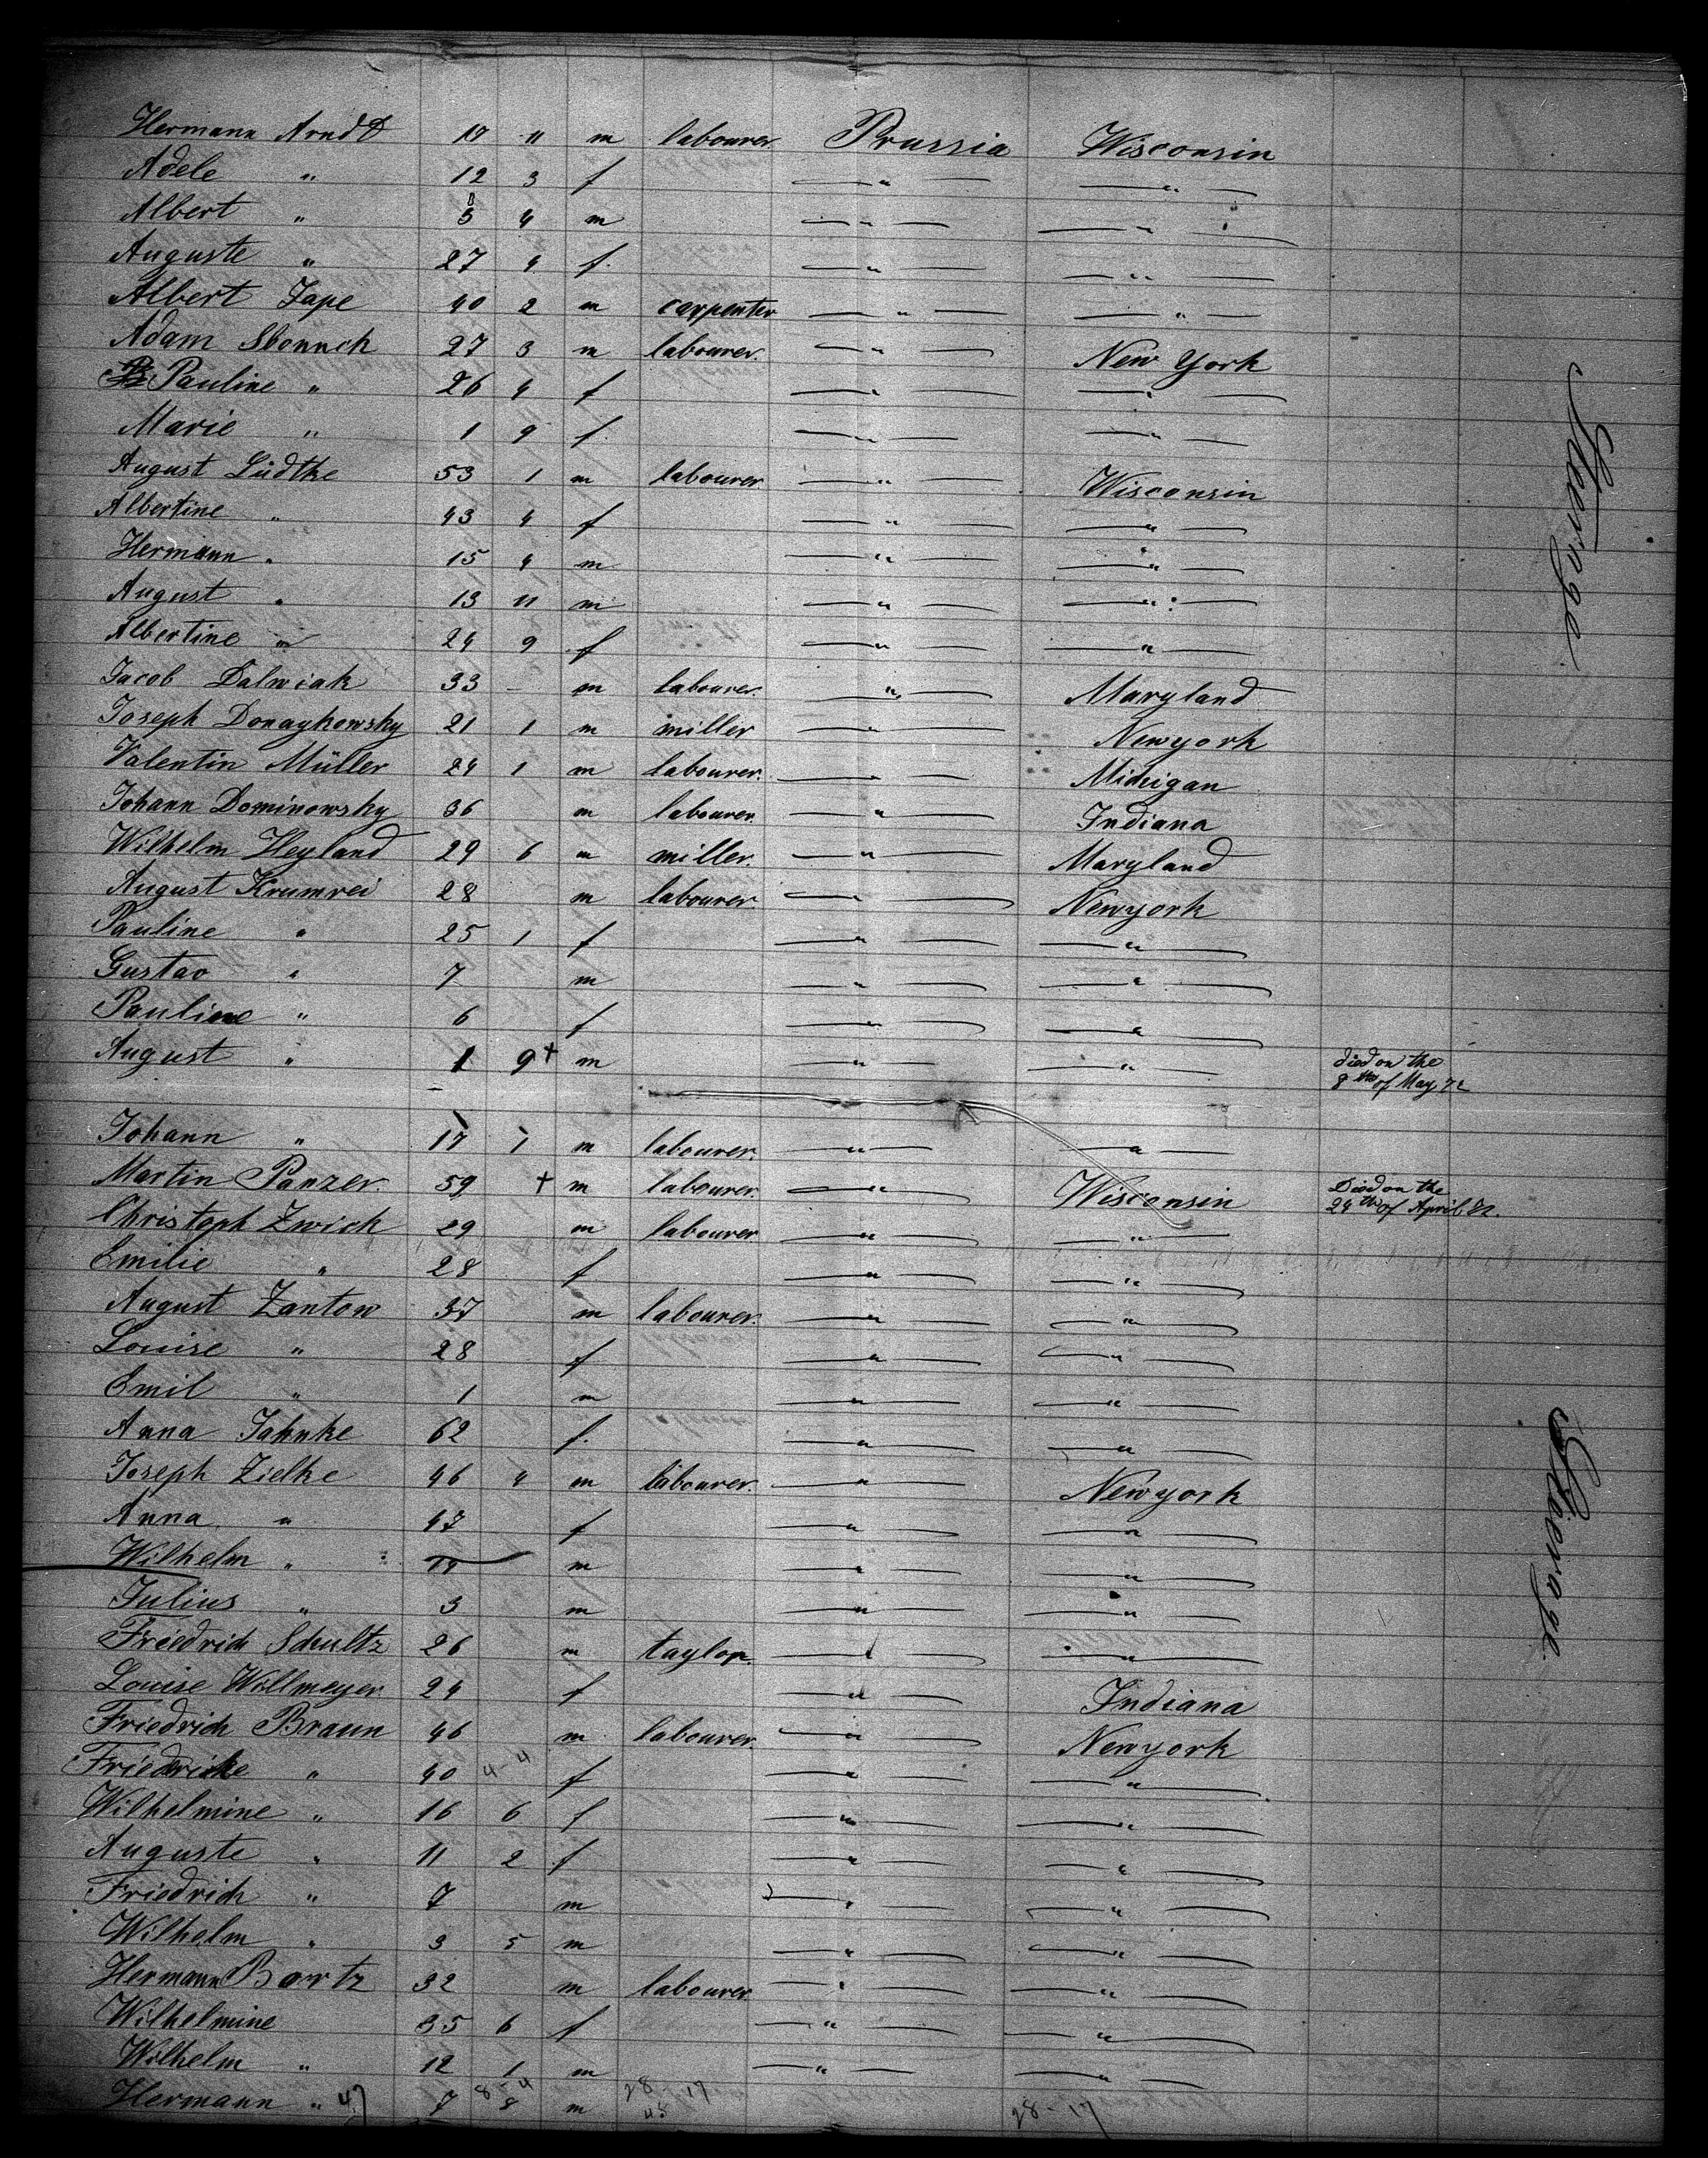 Hermann Arndt 17 11 m labourer Prussia Wisconsin
Adele " 12 3 f " "
Albert " 4 m " "
Auguste " 27 4 f. " "
Albert Jape 40 2 m carpenter " "
Adam 27 3 m labourer. " New York
Pauline " 26 4 f " "
Marie " 1 9 f. " "
August Lüdtke 53 1 m labourer " Wisconsin
Albertine " 43 4 f " "
Hermann " 15 4 m " "
August " 13 11 m " "
Albertine " 24 9 f " "
Jacob Dalwiak 33 - m labourer. " Maryland
Joseph Donaykowsky 21 1 m miller " Newyork
Valentin Müller 24 1 m labourer. " Michigan
Johann Dominowsky 36 m labourer. " Indiana
Wilhelm Heyland 29 6 m miller. " Maryland
August Krumrei 28 m labourer " Newyork
Pauline " 25 1 f " "
Gustav " 7 m " "
Pauline " 6 f " "
August " 1 9 + m " " died on the
8th of May 72
Johann " 17 1 m labourer. " "
Martin Panzer. 59 + m labourer. " Wisconsin Died on the
29th of April 72.
Christoph Zwick 29 m labourer " "
Emilie " 28 f " "
August Zantow 37 m labourer. " "
Louise " 28 f " "
Emil " 1 m " "
Anna Jahnke 62 f. " "
Joseph Zielke 46 4 m labourer. " Newyork
Anna " 47 f " "
Wilhelm " m " "
Julius " 3 m " "
Friedrich Schultz 26 m taylor. " "
Louise Willmeyer 24 f " Indiana
Friedrich Braun 46 m labourer. " Newyork
Friedricke " 40 4-4 f " "
Wilhelmine " 16 6 f " "
Auguste " 11 2 f " "
Friedrich " 7 m " "
Wilhelm " 3 5 m " "
Hermann Bortz 32 m labourer. " "
Wilhelmine 35 6 f " "
Wilhelm " 12 1 m " "
Hermann " 47 7 8 m 28-17
48
28-17
Steerage.
Steerage.